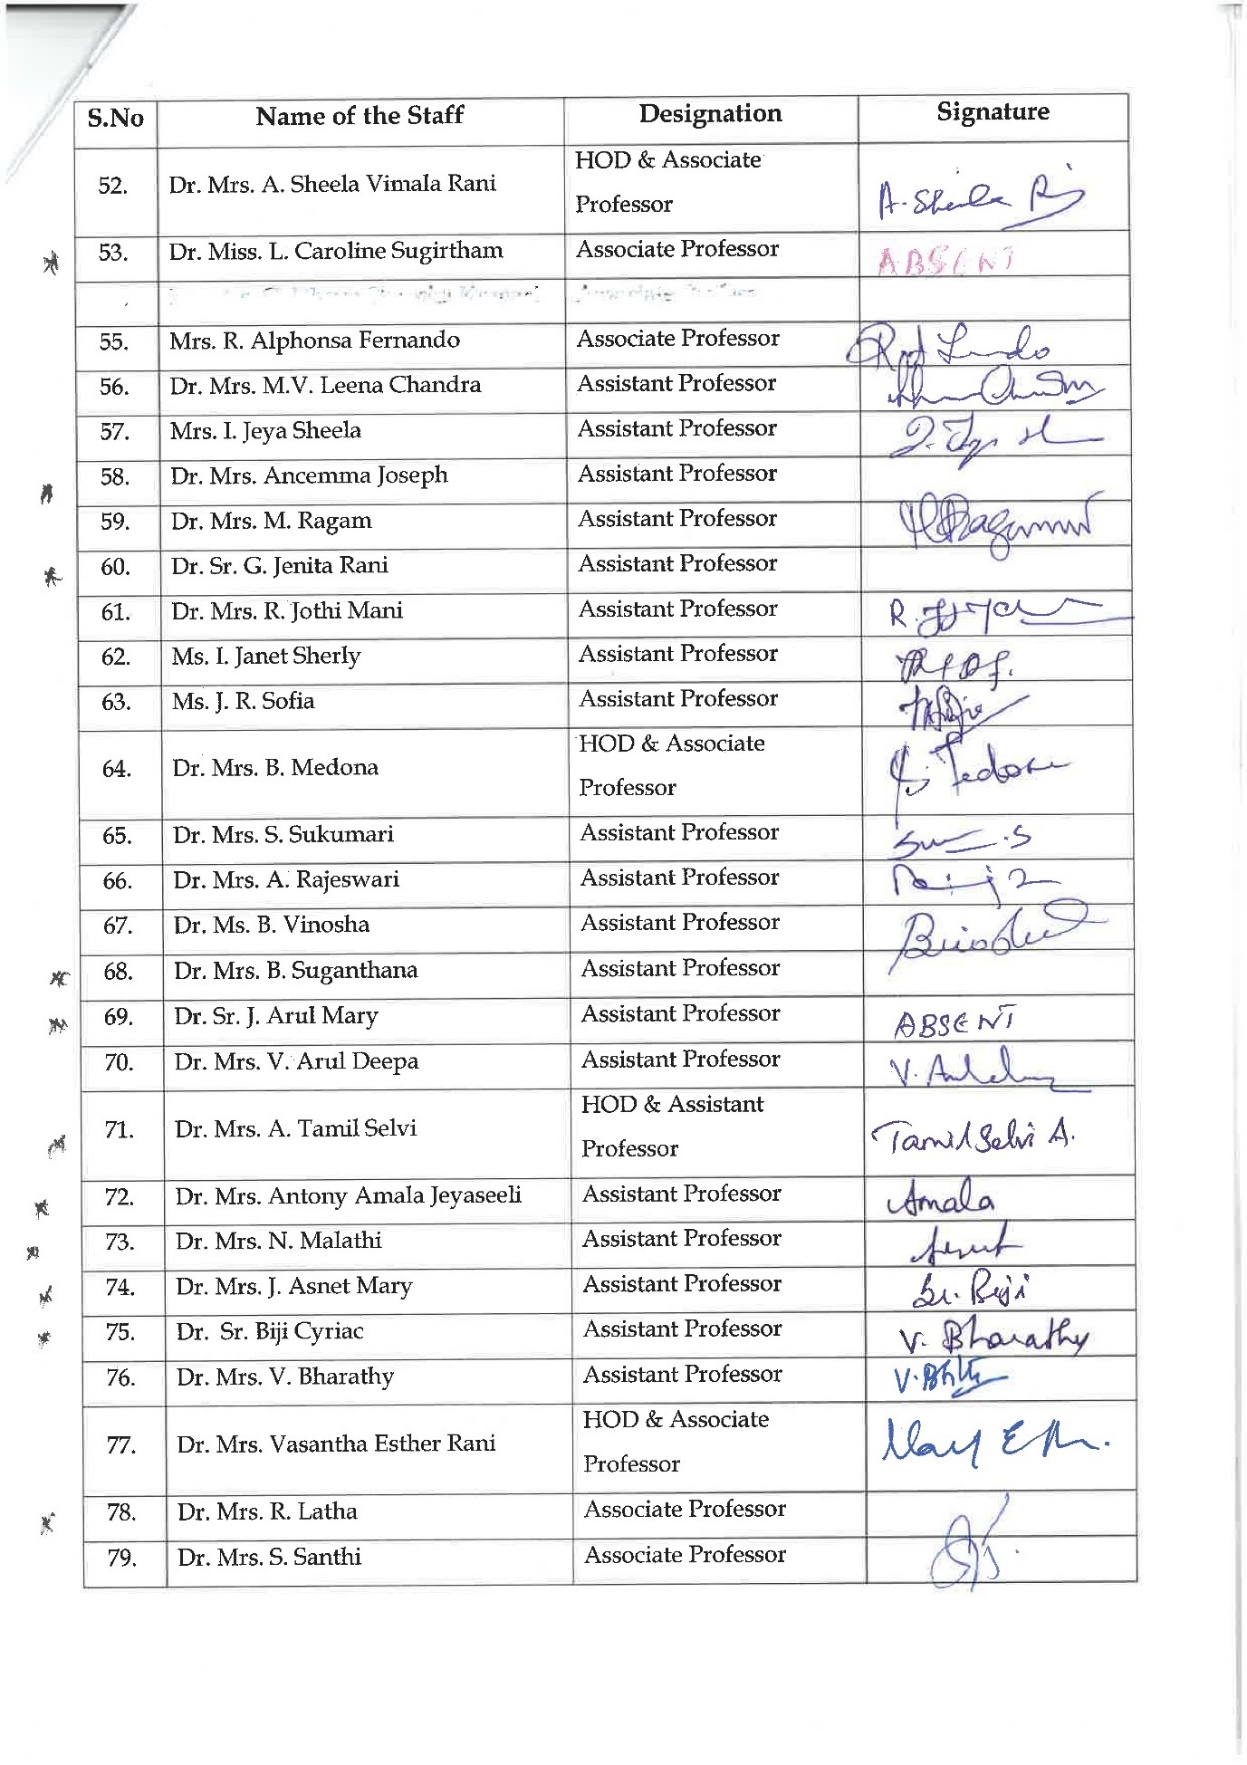 S.No Name of the Staff Designation Signature
52. Dr. Mrs. A. Sheela Vimala Rani HOD & Associate
Professor A. Sheela
53. Dr. Miss. L. Caroline Sugirtham Associate Professor ABSENT
55. Mrs. R. Alphonsa Fernando Associate Professor
56. Dr. Mrs. M.V. Leena Chandra Assistant Professor
57. Mrs. I. Jeya Sheela Assistant Professor
58. Dr. Mrs. Ancemma Joseph Assistant Professor
59. Dr. Mrs. M. Ragam Assistant Professor
60. Dr. Sr. G. Jenita Rani Assistant Professor
61. Dr. Mrs. R. Jothi Mani Assistant Professor
62. Ms. I. Janet Sherly Assistant Professor
63. Ms. J. R. Sofia Assistant Professor
64. Dr. Mrs. B. Medona HOD & Associate
Professor
65. Dr. Mrs. S. Sukumari Assistant Professor
66. Dr. Mrs. A. Rajeswari Assistant Professor
67. Dr. Ms. B. Vinosha Assistant Professor
68. Dr. Mrs. B. Suganthana Assistant Professor
69. Dr. Sr. J. Arul Mary Assistant Professor ABSENT
70. Dr. Mrs. V. Arul Deepa Assistant Professor
71. Dr. Mrs. A. Tamil Selvi HOD & Assistant
Professor Tamil Selvi A.
72. Dr. Mrs. Antony Amala Jeyaseeli Assistant Professor Amala
73. Dr. Mrs. N. Malathi Assistant Professor
74. Dr. Mrs. J. Asnet Mary Assistant Professor Sr. Biji
75. Dr. Sr. Biji Cyriac Assistant Professor V. Bharathy
76. Dr. Mrs. V. Bharathy Assistant Professor
77. Dr. Mrs. Vasantha Esther Rani HOD & Associate
Professor
78. Dr. Mrs. R. Latha Associate Professor
79. Dr. Mrs. S. Santhi Associate Professor